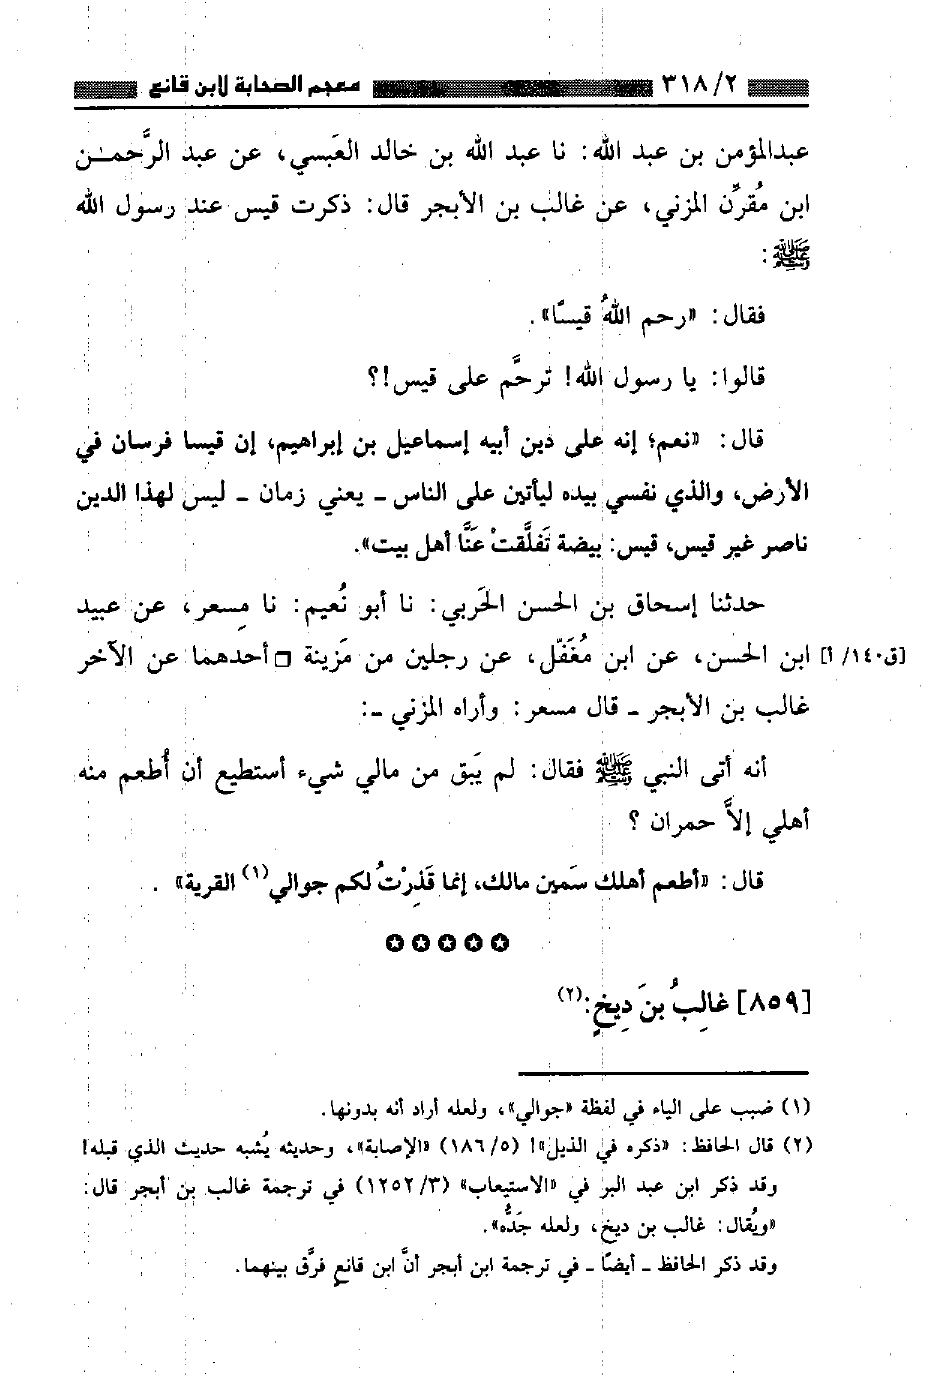 ٣١٨/٢ معجم الصحابة لابن قانع
عبدالمؤمن بن عبد الله: نا عبد الله بن خالد العَبسي، عن عبد الرَّحمـٰن
ابن مُقرِّن المزني، عن غالب بن الأبجر قال: ذكرت قيس عند رسول الله
ﷺ:
فقال: «رحم اللهُ قيسًا».
قالوا: يا رسول الله! ترحَّم على قيس!؟
قال: «نعم؛ إنه على دين أبيه إسماعيل بن إبراهيم، إن قيسا فرسان في
الأرض، والذي نفسي بيده ليأتين على الناس ـ يعني زمان ـ ليس لهذا الدين
ناصر غير قيس، قيس: بيضة تَفلَّقتْ عَنَّا أهل بيت».
حدثنا إسحاق بن الحسن الحَربي: نا أبو نُعيم: نا مِسعر، عن عبيد
[ق١٤٠/أ] ابن الحسن، عن ابن مُغَفّل، عن رجلين من مَزينة □ أحدهما عن الآخر
غالب بن الأبجر ـ قال مسعر: وأراه المزني ـ:
أنه أتى النبي ﷺ فقال: لم يَبق من مالي شيء أستطيع أن أُطعم منه
أهلي إلاَّ حمران ؟
قال: «أطعم أهلك سَمين مالك، إنما قَذِرْتُ لكم جوالي(١) القرية» .
✪✪✪✪✪
[٨٥٩] غالِبُ بنَ دِيخٍ:(٢)
(١) ضبب على الياء في لفظة «جوالي»، ولعله أراد أنه بدونها.
(٢) قال الحافظ: «ذكره في الذيل»! (١٨٦/٥) «الإصابة»، وحديثه يُشبه حديث الذي قبله!
وقد ذكر ابن عبد البر في «الاستيعاب» (١٢٥٢/٣) في ترجمة غالب بن أبجر قال:
«ويُقال: غالب بن ديخ، ولعله جَدُّه».
وقد ذكر الحافظ ـ أيضًا ـ في ترجمة ابن أبجر أنَّ ابن قانعٍ فرَّق بينهما.